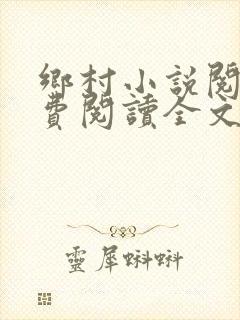 鄉村小説閱
費閱讀全文
靈犀蝌蝌